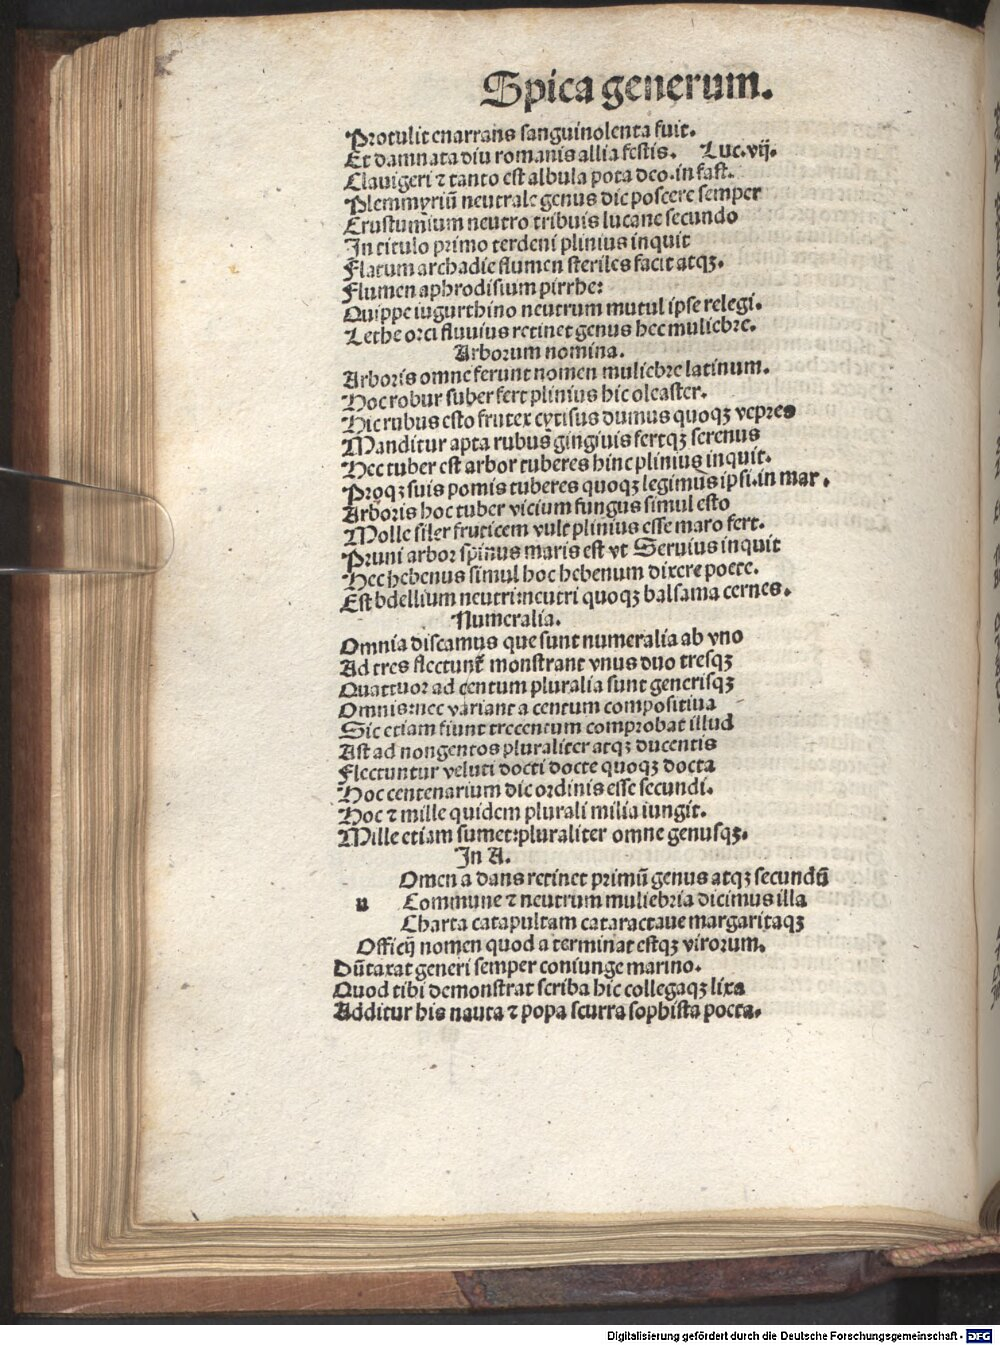 Spica generum.
Protulit enarrans sanguinolenta fuit.
Et damnata diu romanis allia festis. Luc. vij.
Clauigeri ⁊ tanto est albula pota deo. in fast.
Plemmyriū neutrale genus dic poscere semper
Crustumium neutro tribuis lucane secundo
In titulo primo terdeni plinius inquit
Flatum archadie flumen steriles facit atqꝫ.
Flumen aphrodisium pirrhe:
Quippe iugurthino neutrum mutul ipse relegi.
Lethe orci fluuius retinet genus hec muliebre.
Arborum nomina.
Arboris omne ferunt nomen muliebre latinum.
Hoc robur suber fert plinius hic oleaster.
Hic rubus esto frutex cytisus dumus quoqꝫ vepres
Manditur apta rubus gingiuis fertqꝫ serenus
Hec tuber est arbor tuberes hinc plinius inquit.
Proqꝫ suis pomis tuberes quoqꝫ legimus ipsi. in mar.
Arboris hoc tuber vicium fungus simul esto
Molle siler fruticem vult plinius esse maro fert.
Pruni arbor spinus maris est vt Seruius inquit
Hec hebenus simul hoc hebenum dixere poete.
Est bdellium neutri: neutri quoqꝫ balsama cernes.
Numeralia.
Omnia discamus que sunt numeralia ab vno
Ad tres flectunt̃ monstrant vnus duo tresqꝫ
Quattuor ad centum pluralia sunt generisqꝫ
Omnis: nec variant a centum compositiua
Sic etiam fiunt trecentum comprobat illud
Ast ad nongentos pluraliter atqꝫ ducentis
Flectuntur veluti docti docte quoqꝫ docta
Hoc centenarium dic ordinis esse secundi.
Hoc ⁊ mille quidem plurali milia iungit.
Mille etiam sumet: pluraliter omne genusqꝫ.
In A.
Omen a dans retinet primū genus atqꝫ secundū
n Commune ⁊ neutrum muliebria dicimus illa
Charta catapultam cataractaue margaritaqꝫ
Officij nomen quod a terminat estqꝫ virorum.
Dūtaxat generi semper coniunge marino.
Quod tibi demonstrat scriba hic collegaqꝫ lixa
Additur his nauta ⁊ popa scurra sophista poeta.
Digitalisierung gefördert durch die Deutsche Forschungsgemeinschaft - DFG